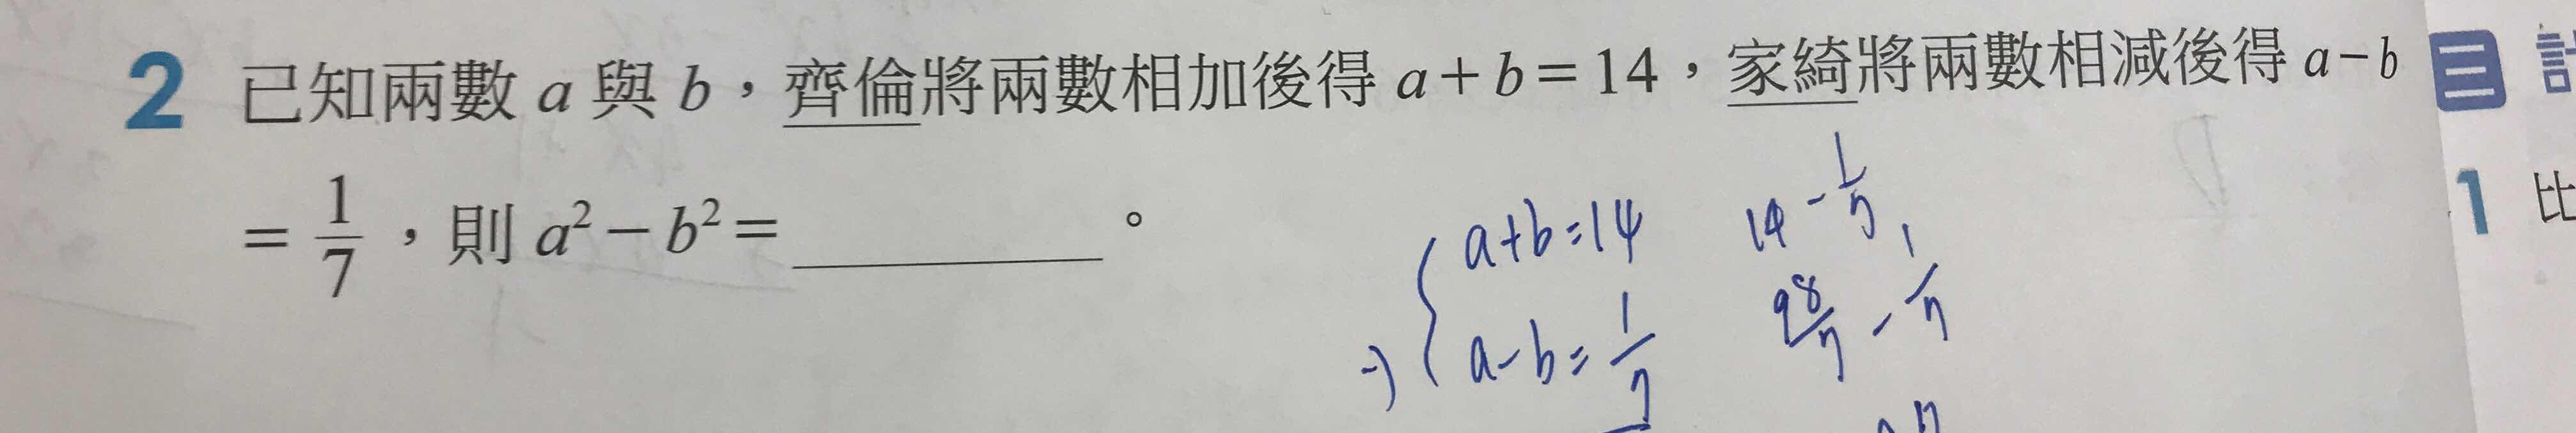 2 已知兩數 a 與 b，齊倫將兩數相加後得 a＋b＝14，家綺將兩數相減後得 a－b
＝1/7，則 a²－b²＝________。
a+b=14
a-b=1/7
14-1/7
98/7-1/7
三 計
1 比